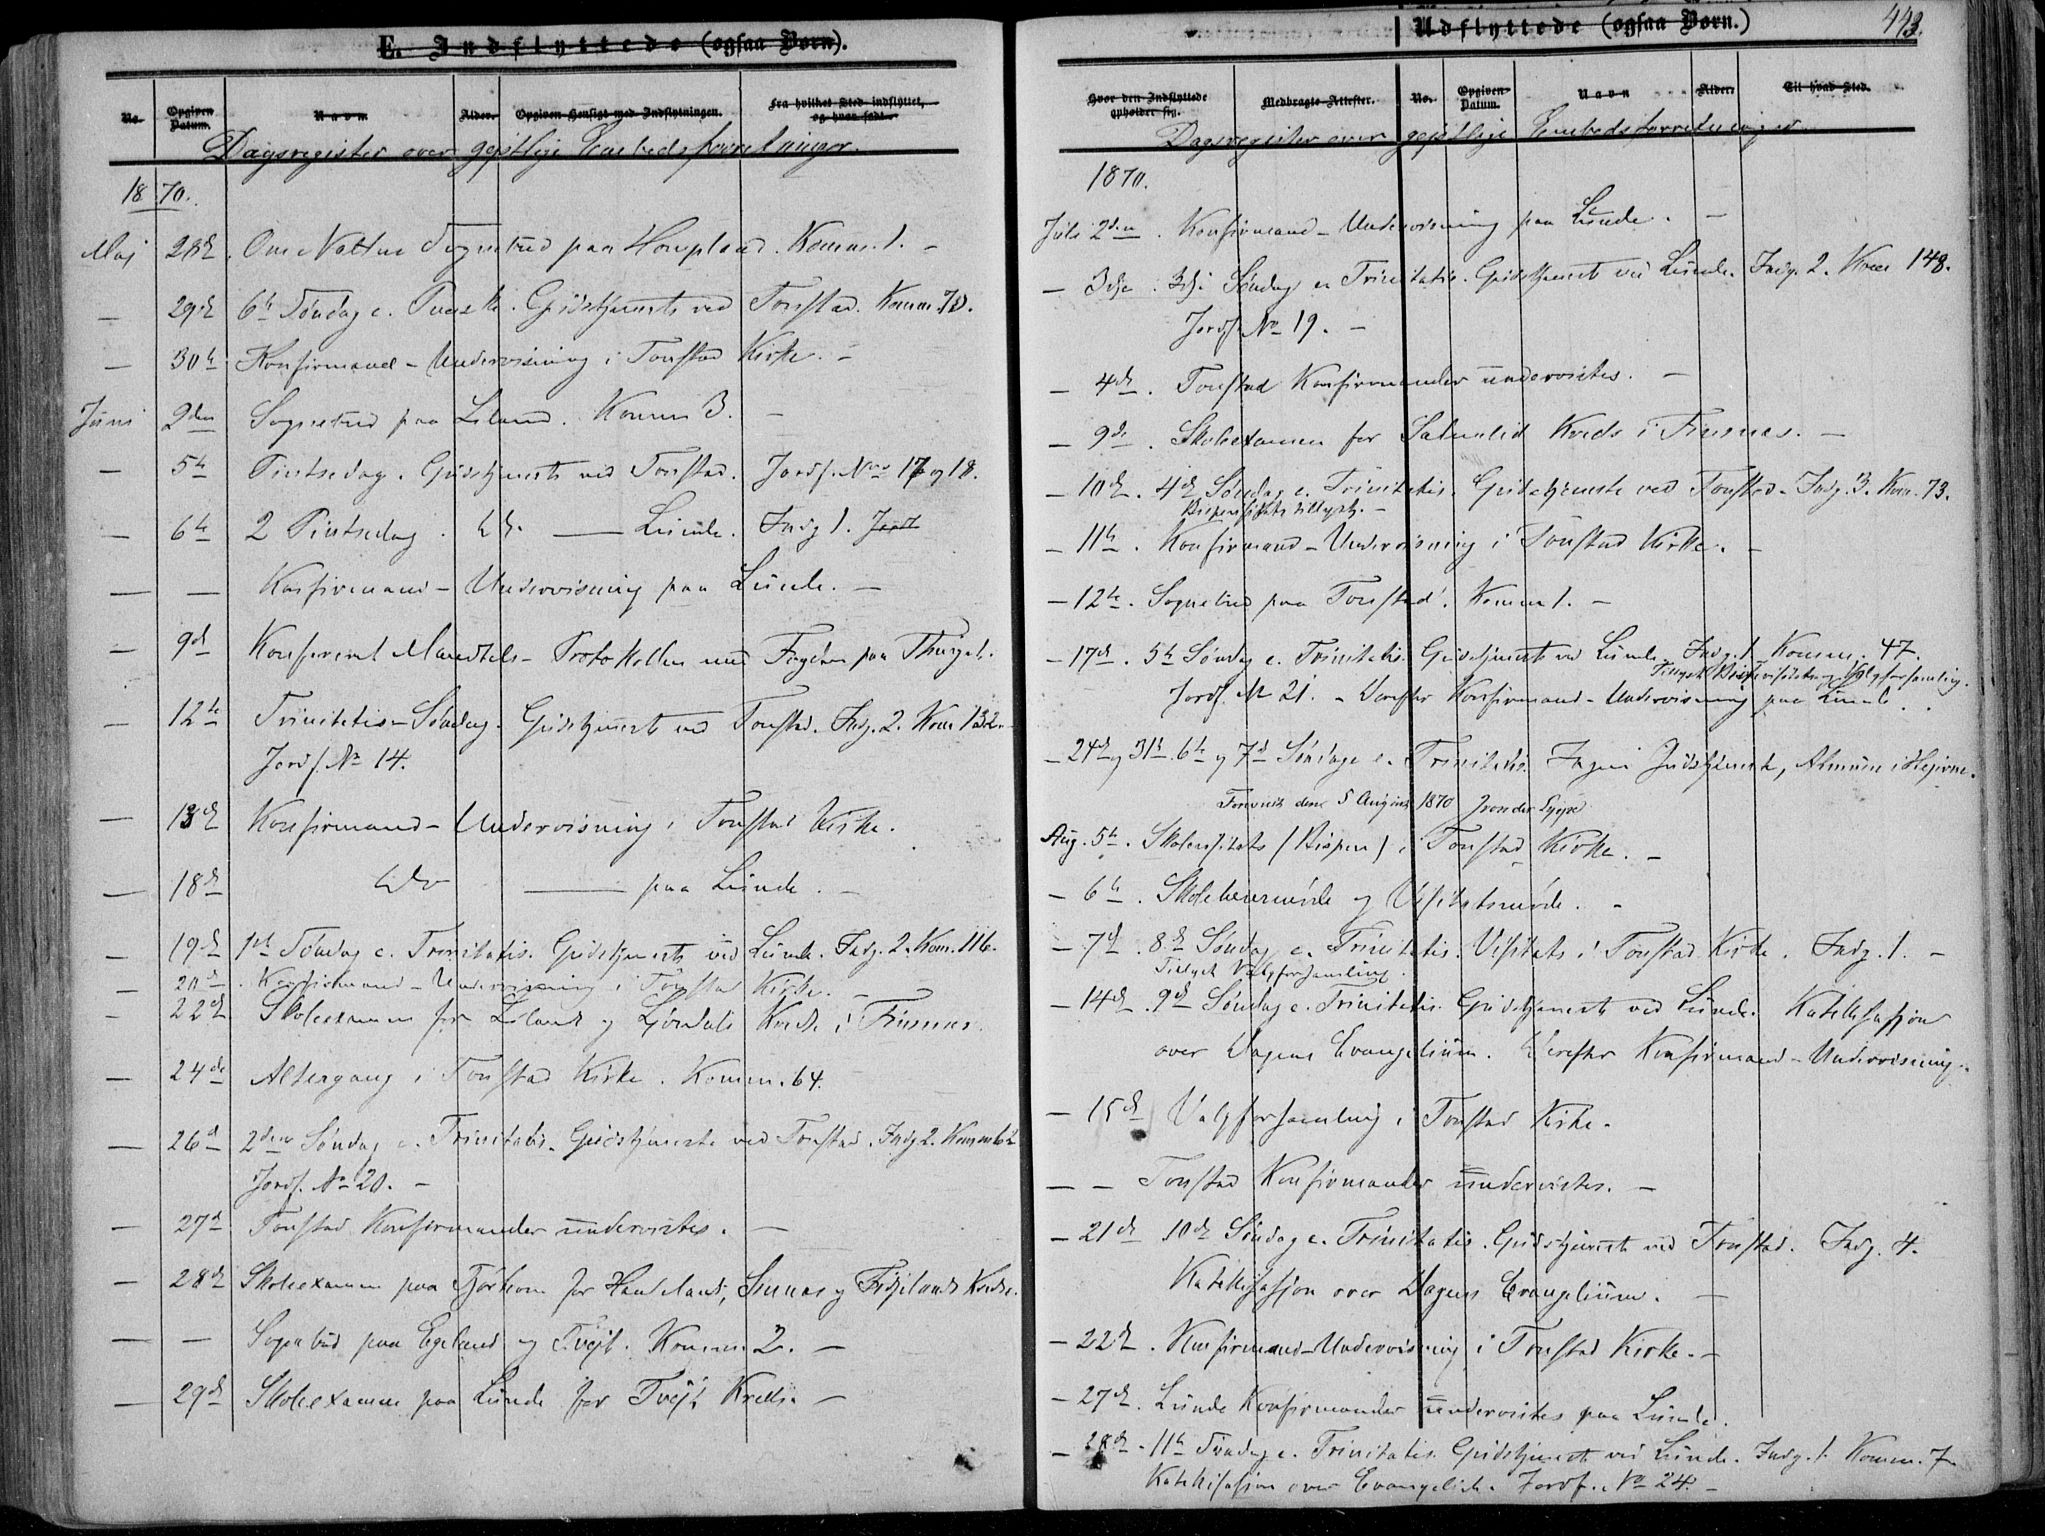 E. Indflyttede (ogsaa Børn).
No. Opgiven Datum. Navn Alder. Opgiven Hensigt med Indflytningen. Fra hvilket Sted indflyttet, og hvor født.
Dagsregister over gejstlige Embedsforretninger.
1870.
Maj 28d. Om Natten Sognebud paa Hompland. Komm. 1. –
— 29d 6te Søndag e. Paaske. Gudstjeneste ved Tonstad. Komm. 70.
— 30te Konfirmand-Undervisning i Tonstad Kirke. –
Juni 2den Sognebud paa Liland. Komm 3. –
— 5te Pintsedag. Gudstjeneste ved Tonstad. Jordf. Nro 17 og 18.
— 6te 2 Pintsedag. do. — Lunde. Indg 1. Jordf
— — Konfirmand-Undervisning paa Lunde. –
— 9d Konfereret Mandtals-Protokollen med Fogden paa
— 12te Trinitatis-Søndag. Gudstjeneste ved Tonstad. Indg. 2. Kom 132.
Jordf. No 14.
— 13d Konfirmand-Undervisning i Tonstad Kirke.
— 18d do — paa Lunde. –
— 19d 1ste Søndag e. Trinitatis. Gudstjeneste ved Lunde. Indg. 2. Kom. 116.
— 20d. Konfirmand-Undervisning i Tonstad Kirke. –
— 22d Skoleexamen for Liland og Kreds i Finsnes.
— 24de Altergang i Tonstad Kirke. Komm. 64.
— 26d 2den Søndag e. Trinitatis. Gudstjeneste ved Tonstad. Indg 2. Komm
Jordf. No 20. –
— 27d Tonstad Konfirmander undervistes. –
— 28d Skoleexamen paa Tjørhom for Haneland, Sinnes og Fidjelands Kredse.
— — Sognebud paa Egeland og Tvejt. Komm. 2. –
— 29d Skoleexamen paa Lunde for Tvejt Kreds. –
Udflyttede (ogsaa Børn.) 443.
Hvor den Indflyttede opholder sig. Medbragte Attester. No. Opgiven Datum. Navn Alder. Til hvad Sted.
Dagsregister over gejstlige Embedsforretninger
1870.
Juli 2den. Konfirmand-Undervisning paa Lunde. –
— 3dje. 3dje Søndag e. Trinitatis. Gudstjeneste ved Lunde. Indg. 2. Kom 148.
Jordf. No 19. –
— 4de. Tonstad Konfirmander undervistes. –
— 9de. Skoleexamen for Salmelid Kreds i Finsnes. –
— 10d. 4d Søndag e. Trinitatis. Gudstjeneste ved Tonstad. Indg. 3. Kom. 73.
Bispevisitats tillyst. –
— 11te. Konfirmand-Undervisning i Tonstad Kirke. –
— 12te. Sognebud paa Tonstad. Komm 1. –
— 17d. 5te Søndag e. Trinitatis. Gudstjeneste ved Lunde. Indg. 1. Komm. 47.
Tillyst Bispevisitats og Valgforsamling.
Jordf. No 21. – Derefter Konfirmand-Undervisning paa Lunde.
— 24d og 31te. 6te og 7d Søndage e. Trinitatis. Ingen Gudstjeneste, Almuen i Hejerne.
Forevist den 5 August 1870
Aug. 5te. Skolevisitats (Bispen) i Tonstad Kirke. –
— 6te. Skolelærermøde og Visitatsmøde. –
— 7d. 8d Søndag e. Trinitatis. Visitats i Tonstad Kirke. Indg. 1. –
Tillyst Valgforsamling.
— 14d. 9d Søndag e. Trinitatis. Gudstjeneste ved Lunde. Katekisasjon
over Dagens Evangelium. Derefter Konfirmand-Undervisning.
— 15d Valgforsamling i Tonstad Kirke.
— — Tonstad Konfirmander undervistes. –
— 21d 10d Søndag e. Trinitatis. Gudstjeneste ved Tonstad. Indg. 4.
Katekisasjon over Dagens Evangelium. –
— 22d. Konfirmand-Undervisning i Tonstad Kirke. –
— 27d. Lunde Konfirmander undervistes paa Lunde.
— 28d. 11te Søndag e. Trinitatis. Gudstjeneste ved Lunde. Indg. 1. Komm. 7.
Katekisasjon over Evangeliet. Jordf. No 24. –